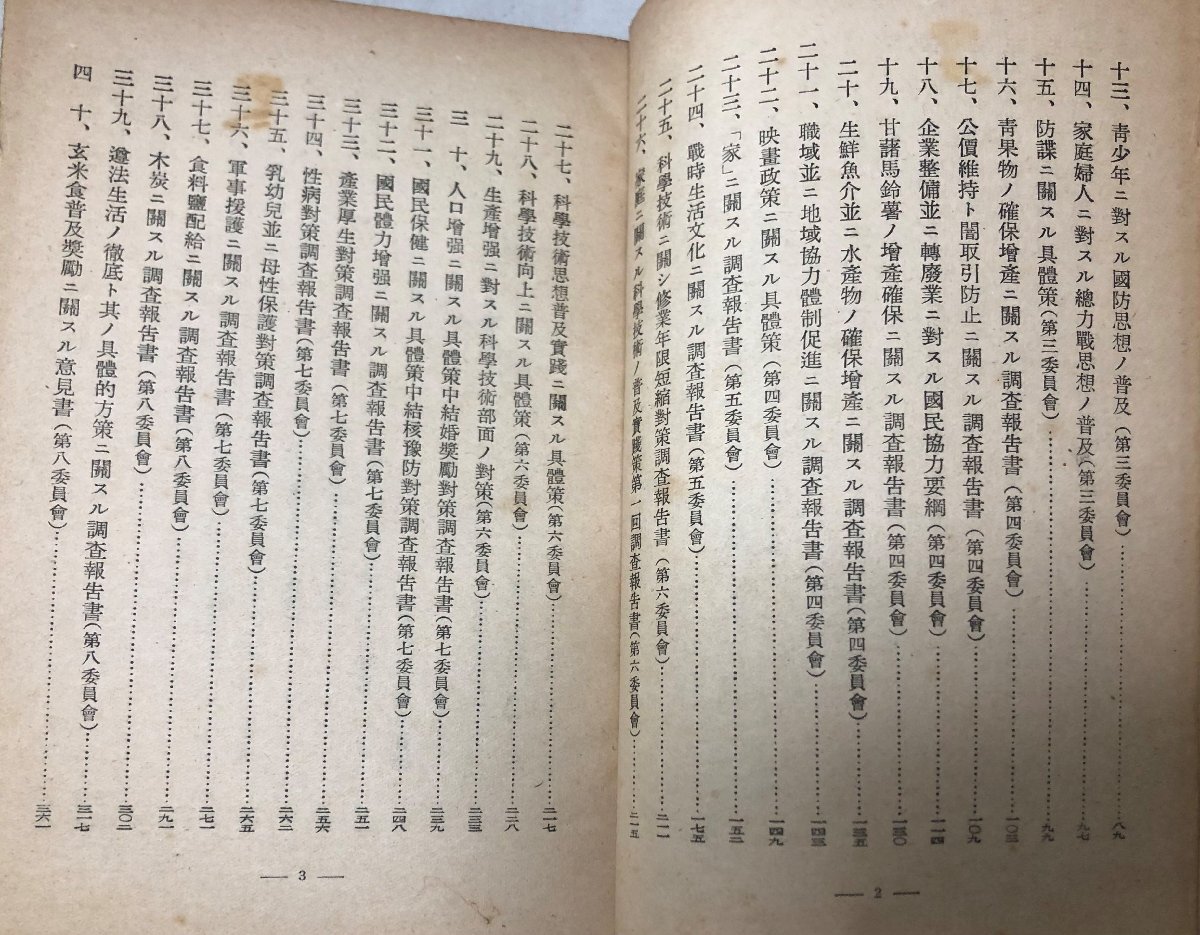 十三、靑少年ニ對スル國防思想ノ普及（第三委員會）……八九
十四、家庭婦人ニ對スル總力戰思想ノ普及（第三委員會）……九七
十五、防諜ニ關スル具體策（第三委員會）……九九
十六、靑果物ノ確保增產ニ關スル調査報吿書（第四委員會）……一〇三
十七、公價維持ト闇取引防止ニ關スル調査報吿書（第四委員會）……一〇九
十八、企業整備並ニ轉廢業ニ對スル國民協力要綱（第四委員會）……一一四
十九、甘諸馬鈴薯ノ增產確保ニ關スル調査報吿書（第四委員會）……一三〇
二十、生鮮魚介並ニ水產物ノ確保增產ニ關スル調査報吿書（第四委員會）……一三五
二十一、職域並ニ地域協力體制促進ニ關スル調査報吿書（第四委員會）……一四三
二十二、映畫政策ニ關スル具體策（第四委員會）……一四九
二十三、「家」ニ關スル調査報吿書（第五委員會）……一五二
二十四、戰時生活文化ニ關スル調査報吿書（第五委員會）……一七五
二十五、科學技術ニ關シ修業年限短縮對策調査報吿書（第六委員會）……二一一
二十六、家庭ニ關スル科學技術ノ普及實踐策第一回調査報吿書（第六委員會）……二一五
— 2 —
二十七、科學技術思想普及實踐ニ關スル具體策（第六委員會）……二一七
二十八、科學技術向上ニ關スル具體策（第六委員會）……二二八
二十九、生產增强ニ對スル科學技術部面ノ對策（第六委員會）……二三三
三　十、人口增强ニ關スル具體策中結婚奬勵對策調査報吿書（第七委員會）……二三九
三十一、國民保健ニ關スル具體策中結核豫防對策調査報吿書（第七委員會）……二四八
三十二、國民體力增强ニ關スル調査報吿書（第七委員會）……二五一
三十三、產業厚生對策調査報吿書（第七委員會）……二五六
三十四、性病對策調査報吿書（第七委員會）……二六二
三十五、乳幼兒並ニ母性保護對策調査報吿書（第七委員會）……二六五
三十六、軍事援護ニ關スル調査報吿書（第七委員會）……二七一
三十七、食料鹽配給ニ關スル調査報吿書（第八委員會）……二九一
三十八、木炭ニ關スル調査報吿書（第八委員會）……三〇二
三十九、遵法生活ノ徹底ト其ノ具體的方策ニ關スル調査報吿書（第八委員會）……三一七
四　十、玄米食普及奬勵ニ關スル意見書（第八委員會）……三六一
— 3 —